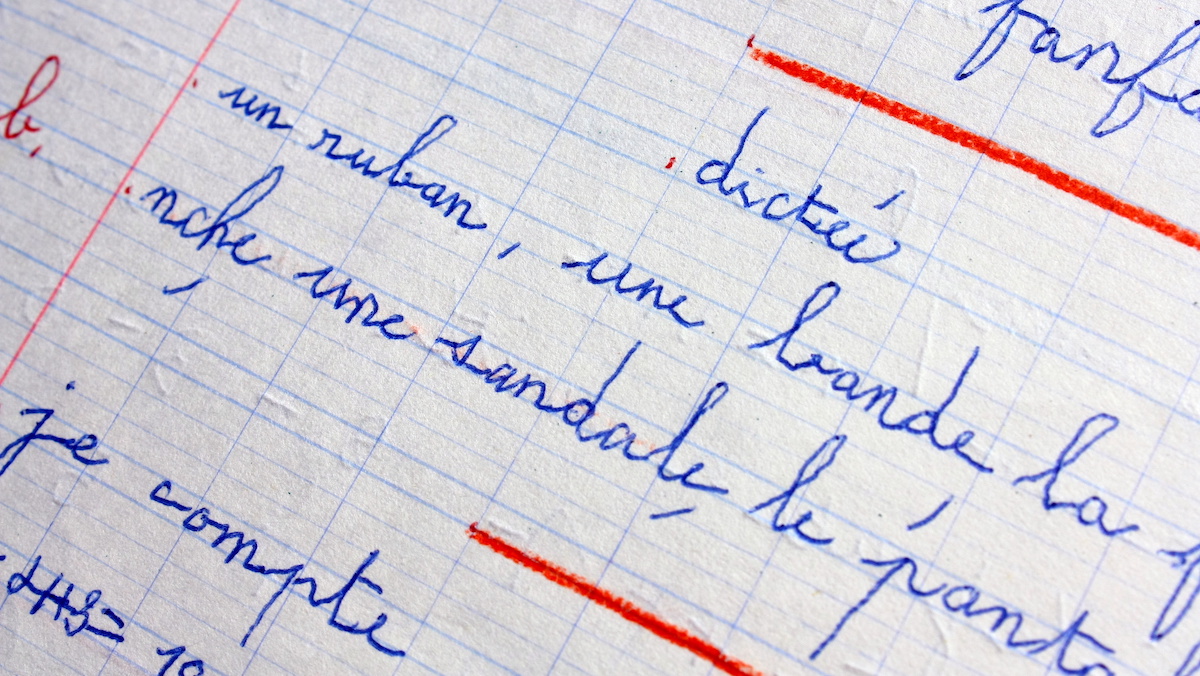 fanfa
dictée
b.
un ruban, une bande, la
nche, une sandale, le panta
je compte